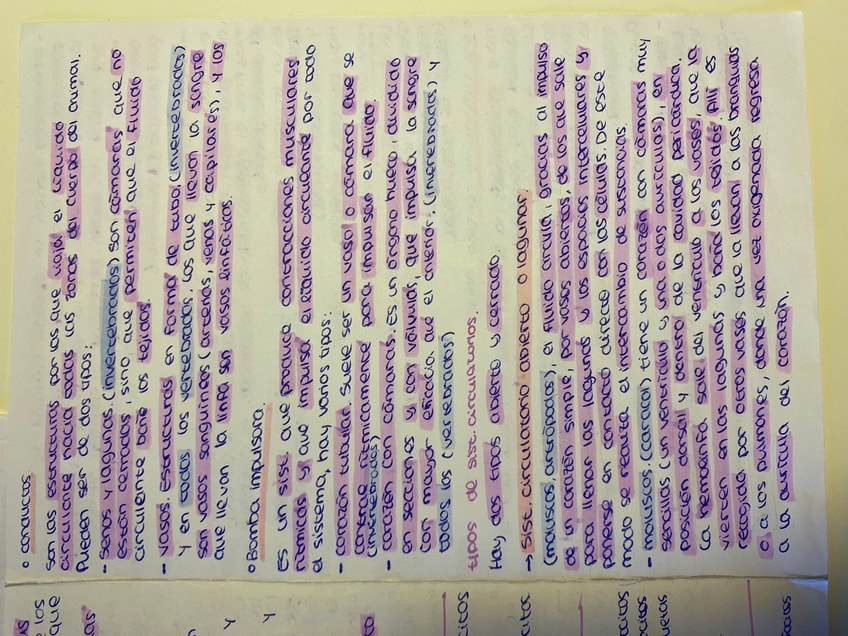 o conductos
son las estructuras por las que viaja el líquido
circulante hacia todas las zonas del cuerpo del animal.
Pueden ser de dos tipos:
- senos y lagunas. (invertebrados) son cámaras que no
están cerradas, sino que permiten que el fluido
circulante bañe los tejidos.
- vasos. estructuras en forma de tubo, (invertebrados)
y en todos los vertebrados, los que llevan la sangre
son vasos sanguíneos (arterias, venas y capilares), y los
que llevan la linfa son vasos linfáticos.
o Bomba impulsora.
Es un sist. que produce contracciones musculares
rítmicas y que impulsa el líquido circulante por todo
el sistema, hay varios tipos:
- corazón tubular. suele ser un vaso o cámara que se
contrae rítmicamente para impulsar el fluido.
(invertebrados)
- corazón con cámaras. Es un órgano hueco, dividido
en secciones y con válvulas, que impulsa la sangre
con mayor eficacia que el anterior. (invertebrados) y
todos los (vertebrados)
tipos de sist. circulatorios.
Hay dos tipos abierto y cerrado.
→ sist. circulatorio abierto o lagunar.
(moluscos, artrópodos), el fluido circula, gracias al impulso
de un corazón simple, por vasos abiertos, de los que sale
para llenar las lagunas y los espacios intercelulares y
ponerse en contacto directo con las células. De este
modo se realiza el intercambio de sustancias.
- moluscos. (caracol) tiene un corazón con cámaras muy
sencillas (un ventrículo y una o dos aurículas), en
posición dorsal y dentro de la cavidad pericárdica.
La hemolinfa sale del ventrículo a los vasos, que la
vierten en las lagunas y baña los tejidos. Allí es
recogida por otros vasos que la llevan a las branquias
o a los pulmones, donde una vez oxigenada regresa
a la aurícula del corazón.
los
que
y
y
citos
citos
citos